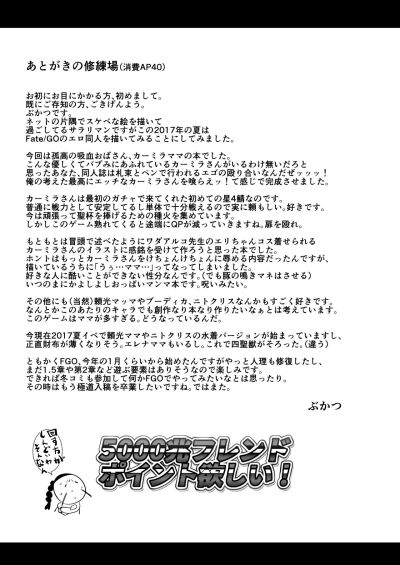 あとがきの修練場(消費AP40)
お初にお目にかかる方、初めまして。
既にご存知の方、ごきげんよう。
ぶかつです。
ネットの片隅でスケベな絵を描いて
過ごしてるサラリマンですがこの2017年の夏は
Fate/GOのエロ同人を描いてみることにしてみました。
今回は孤高の吸血おばさん、カーミラママの本でした。
こんな優しくてバブみにあふれているカーミラさんがいるわけ無いだろと
思ったあなた、同人誌は札束とペンで行われるエゴの殴り合いなんだゼッッッ!
俺の考えた最高にエッチなカーミラさんを喰らえッ!て感じで完成させました。
カーミラさんは最初のガチャで来てくれた初めての星4鯖なのです。
普通に戦力として安定してるし単体で十分戦えるので実に頼もしい。好きです。
今は頑張って聖杯を捧げるための種火を集めています。
しかしこのゲーム熟れてくると途端にQPが減っていきますね。扉を殴れ。
もともとは冒頭で述べたようにワダアルコ先生のエリちゃんコス着せられる
カーミラさんのイラストに感銘を受けて作ろうと思った本でした。
ホントはもっとカーミラさんをけちょんけちょんに辱める内容だったんですが、
描いているうちに「うぅ…ママ…」ってなってしまいました。
好きな人に酷いことができない性分なんです。(でも豚の鳴きマネはさせる)
いつのまにかよしよしおっぱいマンマ本です。呪いみたい。
その他にも(当然)頼光マッマやブーディカ、ニトクリスなんかもすごく好きです。
なんとかこのあたりのキャラでも創作なり本なり作りたいなぁとは考えています。
このゲームはママが多すぎる。どうなっているんだ。
今現在2017夏イベで頼光ママやニトクリスの水着バージョンが始まっていますし、
正直財布が薄くなりそう。エレナママもいるし。これで四聖獣がそろった。(違う)
ともかくFGO、今年の1月くらいから始めたんですがやっと人理も修復したし、
まだ1.5章や第2章など遊ぶ要素はありそうなので楽しみです。
できれば冬コミも参加して何かFGOでやってみたいなとは思ったり。
その時はもう極道入稿を卒業したいですね。ではまた。
ぶかつ
5000兆フレンド
ポイント欲しい!